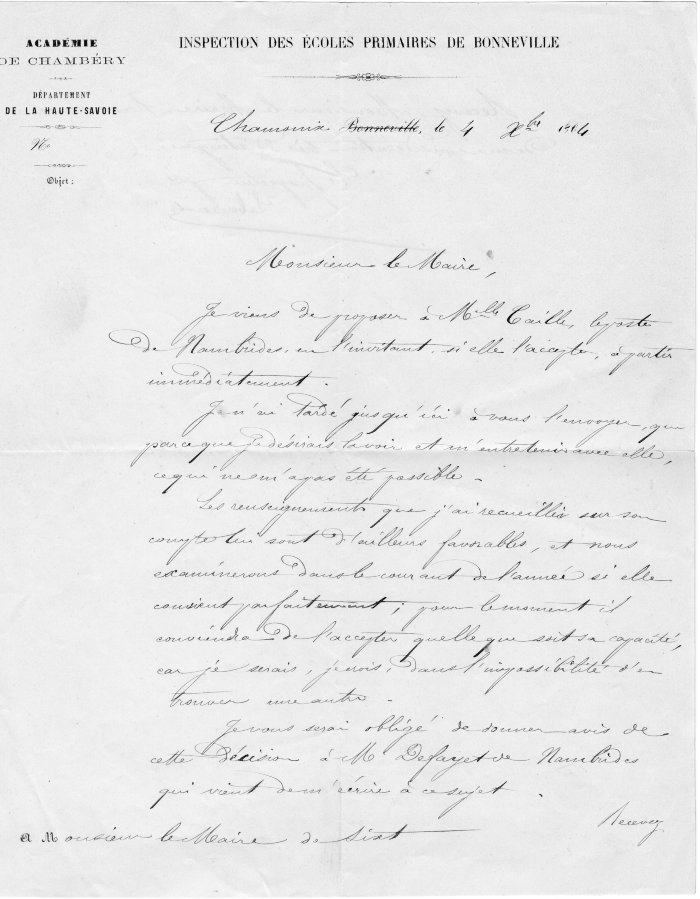 ACADÉMIE
DE CHAMBÉRY
DÉPARTEMENT
DE LA HAUTE-SAVOIE
No
Objet :
INSPECTION DES ÉCOLES PRIMAIRES DE BONNEVILLE
Chamonix Bonneville, le 4 Xbre
Monsieur le Maire,
Je viens de proposer à Melle Caille, le poste
de Nambrides, en l'invitant, si elle l'accepte, à partir
immédiatement.
Je n'ai tardé jusqu'ici à vous l'envoyer, que
parce que je désirais la voir et m'entretenir avec elle,
ce qui ne m'a pas été possible.
Les renseignements que j'ai recueillis sur son
compte lui sont d'ailleurs favorables, et nous
examinerons dans le courant de l'année si elle
convient parfaitement ; pour le moment il
conviendra de l'accepter quelle que soit sa capacité,
car je serais, je crois, dans l'impossibilité d'en
trouver une autre.
Je vous serai obligé de donner avis de
cette décision à M Defayet de Nambrides
qui vient de m'écrire à ce sujet.
Recevez
A Monsieur le Maire de Sixt